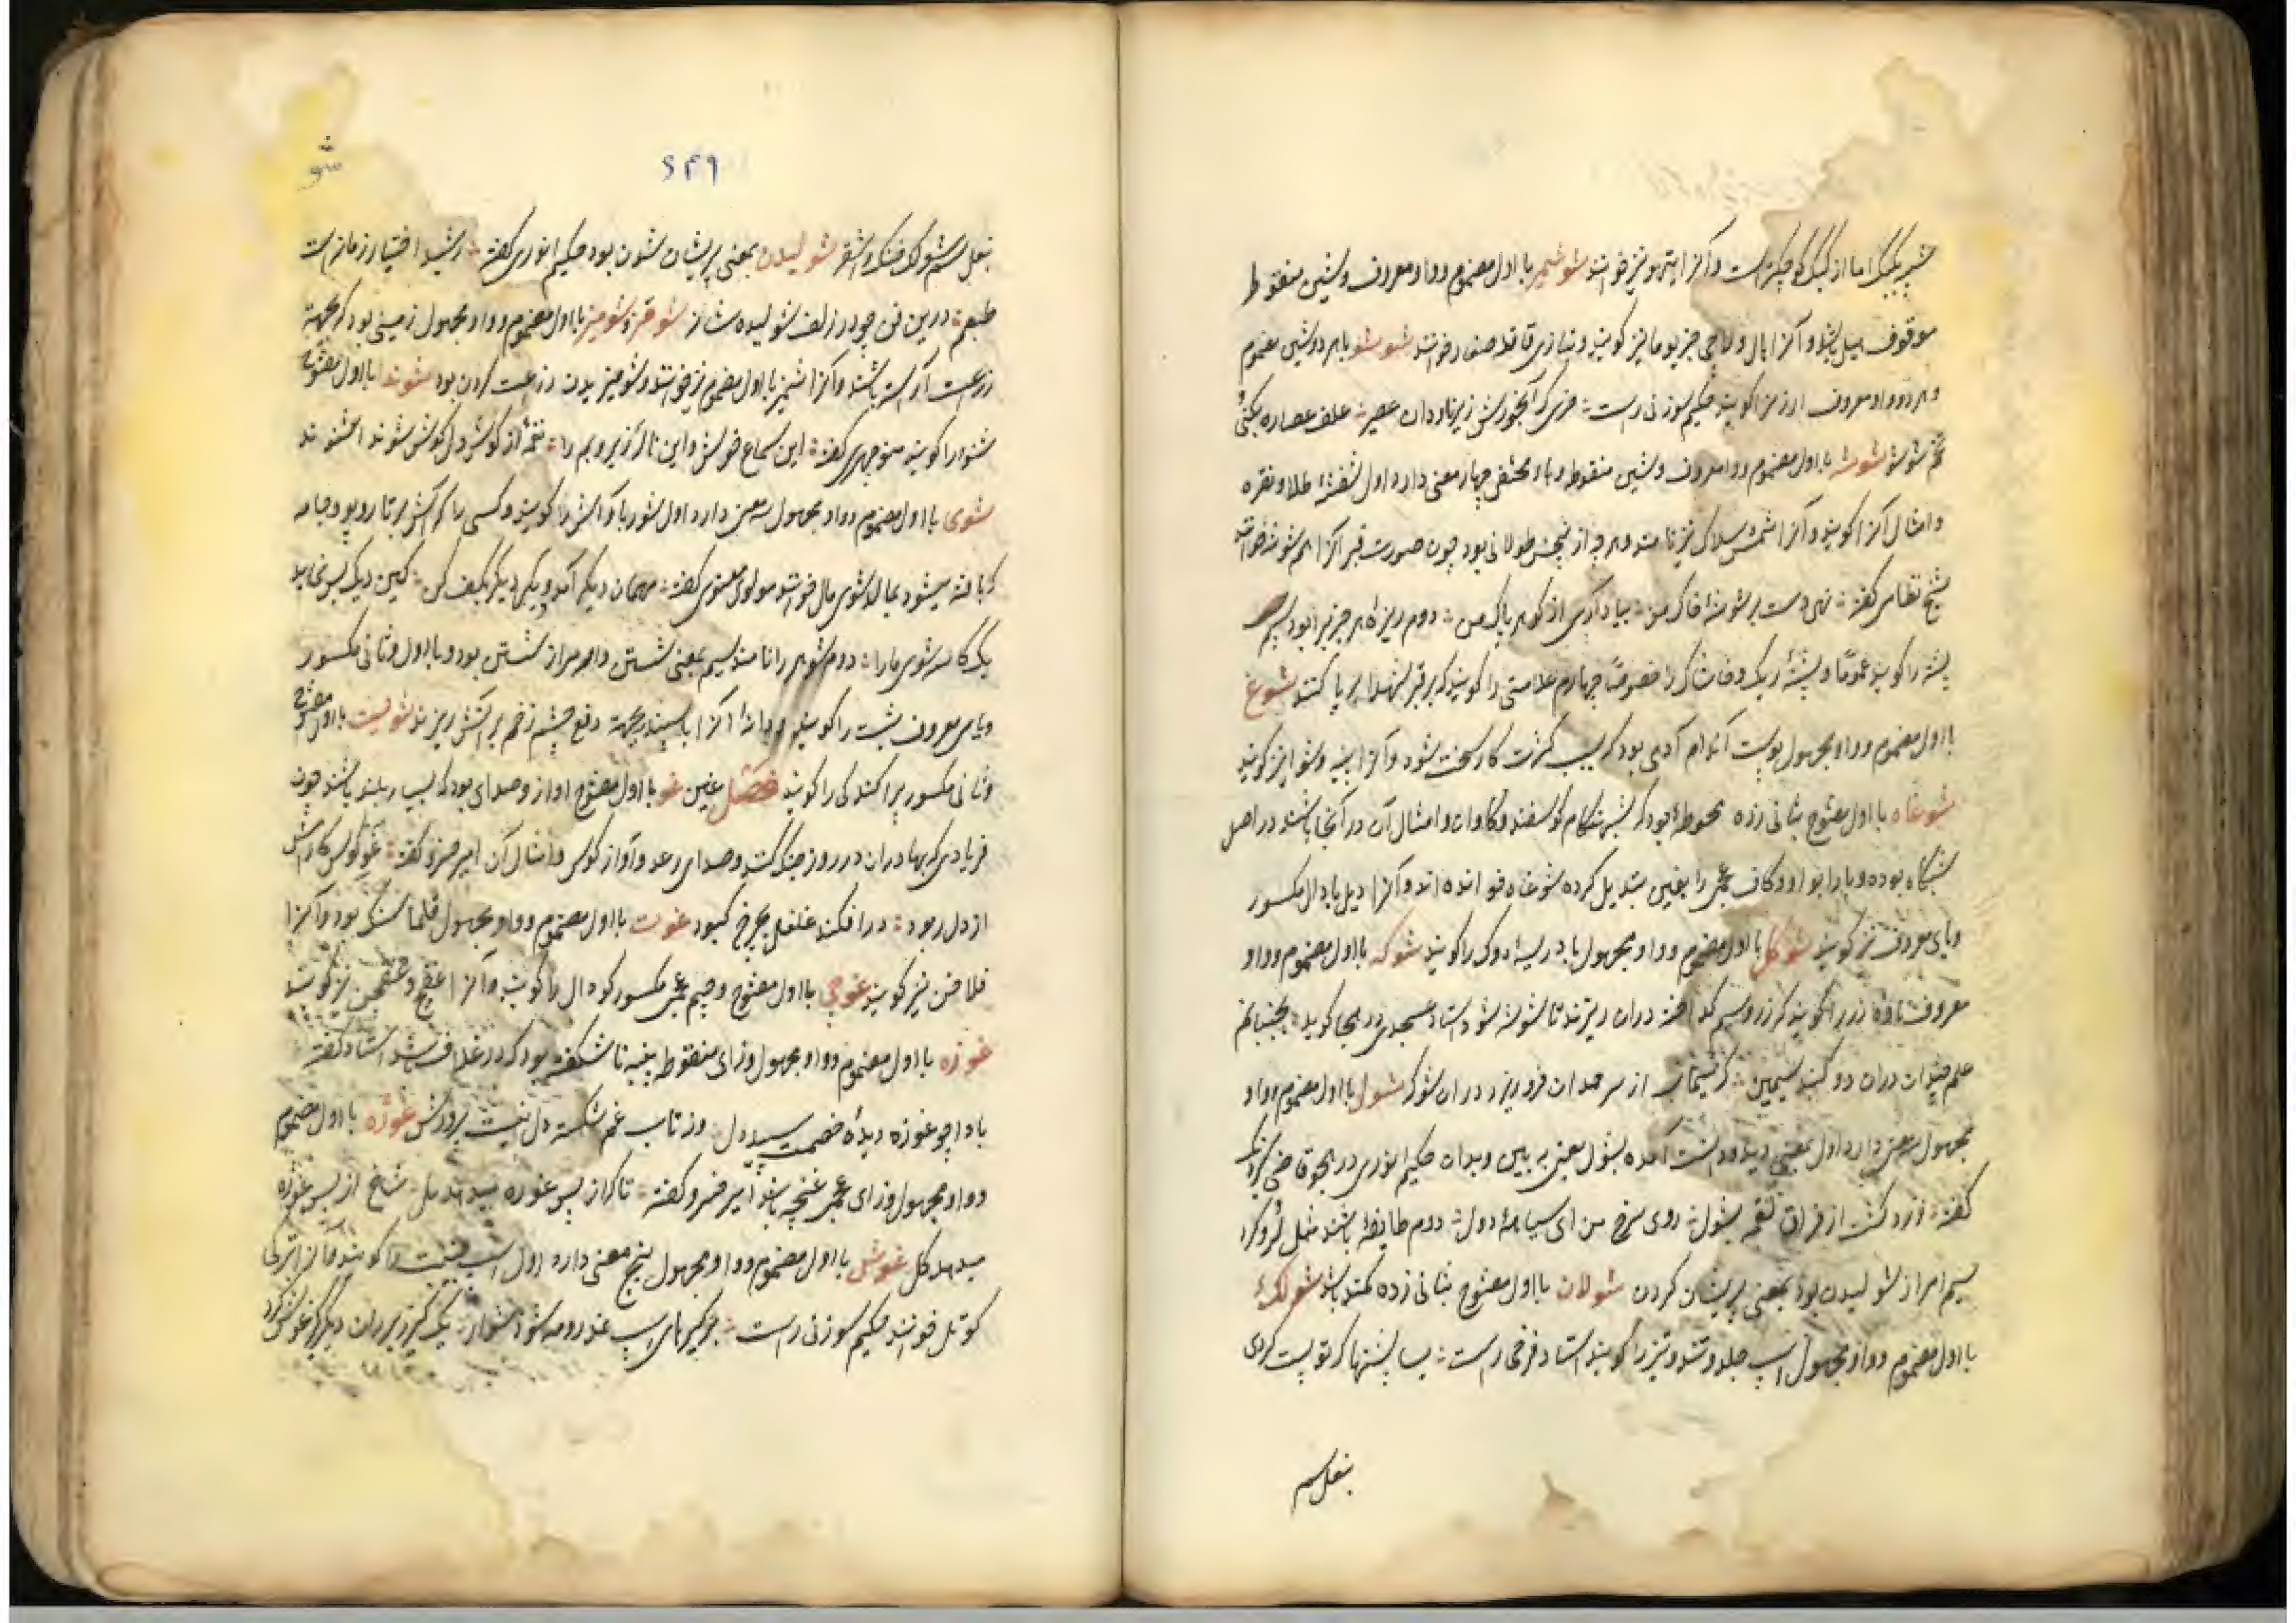 شبیه بکبک اما از کبک کوچکتر است و آنرا تیهو نیز خوانند شوشمیر با اول مضموم و واو معروف و شین منقوط
موقوف هیل باشد و آنرا هال و لاچی خیر بوا نیز گویند و بتازی قاقله صغار خوانند شوشو با هر دو شین مضموم
و هر دو واو معروف ارزن را گویند حکیم سوزنی راست خری که آبخورش زیر ناودان عصیر علف عصاره بکنی
تخم شوشو شوشه با اول مضموم و واو معروف و شین منقوطه و هاء مختفی چهار معنی دارد اول شفشهٔ طلا و نقره
و امثال آنرا گویند و آنرا شمش سلاک نیز نامند و هر چه از پنجش طولانی بود چون صورت قبر آنرا هم شوشه خوانند
شیخ نظامی گفته نهی دست بر شوشهٔ خاک من بیاد آری از گوهر پاک من دوم ریزهٔ هر چیز را بود سیم
پشته را گویند عموماً و پشتهٔ ریگ و خاشاک را خصوصاً چهارم علامتی را گویند که بر قبر شهدا بر پا کنند شوغ
با اول مضموم و واو مجهول پوست اندام آدمی بود که بسبب کثرت کار سخت شود و آنرا پینه و شوا نیز گویند
شوغاه با اول مفتوح بثانی زده محوطهٔ بود که شب هنگام گوسفند و گاوان و امثال آن در آنجا باشند در اصل
شبگاه بوده و با را بواو و کاف عجمی را بغین تبدیل کرده شوغاه خوانده اند و آنرا دیل با دال مکسور
و یای معروف نیز گویند شوکل با اول مضموم و واو مجهول بادریسهٔ دوک را گویند شوکه با اول مضموم و واو
معروف ناوهٔ زر را گویند که زر و سیم گداخته دران ریزند تا شوشه شود استاد عسجدی در هجا گوید بجنبانم
علم چندان دران دو گنبد سیمین که سیماب از سر حمدان فرو ریزد دران شوکه شول با اول مضموم و واو
مجهول سه معنی دارد اول بمعنی دید و دانست آمده بشول یعنی به بین و بدان حکیم انوری در هجو قاضی کیرنگ
گفته زرد گشت از فراق لقمه بشول روی سرخ من ای سیاه دول دوم طایفهٔ باشند مثل لر و کرد
سیم امر از شولیدن بود بمعنی پریشان کردن شولان با اول مفتوح بثانی زده کمند باشد شولک
با اول مضموم و واو مجهول اسپ جلد و تند و تیز را گویند استاد فرخی راست بسا پشتها که تو پست کردی
بنعل سم
شو
۶۴۹
بنعل سم شولک خنگ و اشقر شولیدن بمعنی پریشان شدن بود حکیم انوری گفته رشید اختیار زمان راست
طبعم درین فن چو در زلف شولیده شانه شومز و شومیز با اول مضموم و واو مجهول زمینی بود که بجهة
زراعت آراسته باشند و آنرا شمیز با اول مضموم نیز خوانند و شومیزیدن زراعت کردن بود شوند با اول مفتوح
شنود را گویند منوچهری گفته این سماع خوش و این نالهٔ زیر و بم را نغمه از گوش دل گوش شوند اشنوند
شوی با اول مضموم و واو مجهول سه معنی دارد اول شوربا و آش را گویند و کسی را که آش بر تار و پود جامه
که بافته میشود بمالد شوی مال خوانند مولوی معنوی گفته مهمان دیگر آمد و دیگی دیگر بکف کن کین دیگ بس نماید
یک کاسه شوی ما را دوم شوهر را نامند سیم بمعنی شستن و امر از شستن بود و با اول و ثانی مکسور
و یای معروف شبت را گویند و دانهٔ آنرا با سپند بجهة دفع چشم زخم بر آتش ریزند شویست با اول مضموم
و ثانی مکسور پراکندگی را گویند فصل غین غو با اول مفتوح آواز و صدای بود که بسیار بلند باشد چون
فریادی که بهادران در روز جنگ کنند و صدای رعد و آواز کوس و امثال آن امیر خسرو گفته غو کوس کارامش
از دل ربود در افکند غلغل بچرخ کبود غوت با اول مضموم و واو مجهول قلماسنگ بود و آنرا
فلاخن نیز گویند غوچی با اول مفتوح و جیم عجمی مکسور گودال را گویند و آنرا غفج و غفچی نیز گویند
غوزه با اول مضموم و واو مجهول و زای منقوطه پنبه ناشکفته بود که در غلاف باشد استاد گفته
بادا چو غوزه دیدهٔ خصمت سپید دل وز تاب غم شکسته دل پرورش غوژه با اول مضموم
و واو مجهول و زای عجمی غنچه باشد امیر خسرو گفته تا که از پس غوژه میدهد مل شاخ از پس غوژه
میدهد گل غوشل با اول مضموم و واو مجهول پنج معنی دارد اول اسپ جنیبت را گویند و آنرا بترکی
کوتل خوانند حکیم سوزنی راست